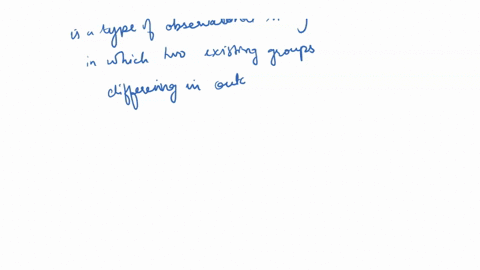 is a type of
in which two existing groups
differing in outc